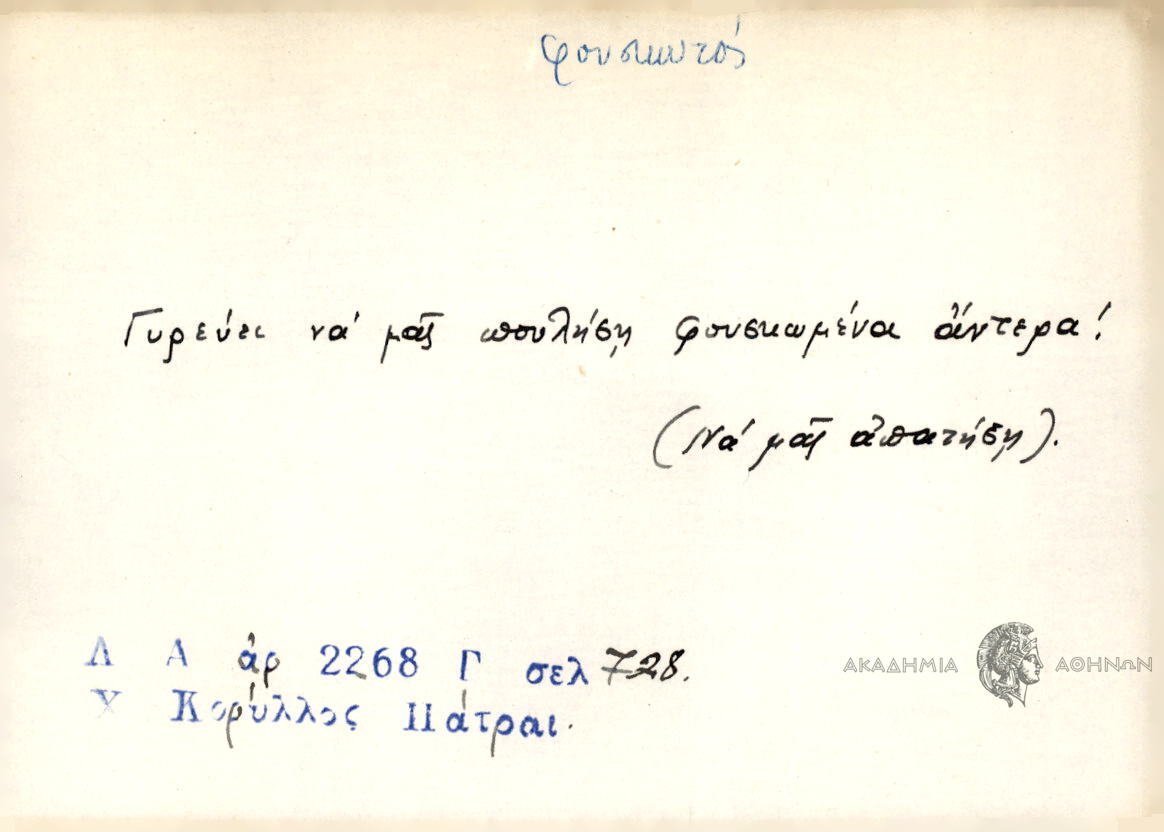 φουσκωτός
Γυρεύει νά μᾶς πουλήση φουσκωμένα ἄντερα!
(Νά μᾶς ἀπατήση).
Λ Α ἀρ 2268 Γ σελ 728.
Χ Κορύλλος Πάτραι.
ΑΚΑΔΗΜΙΑ ΑΘΗΝΩΝ